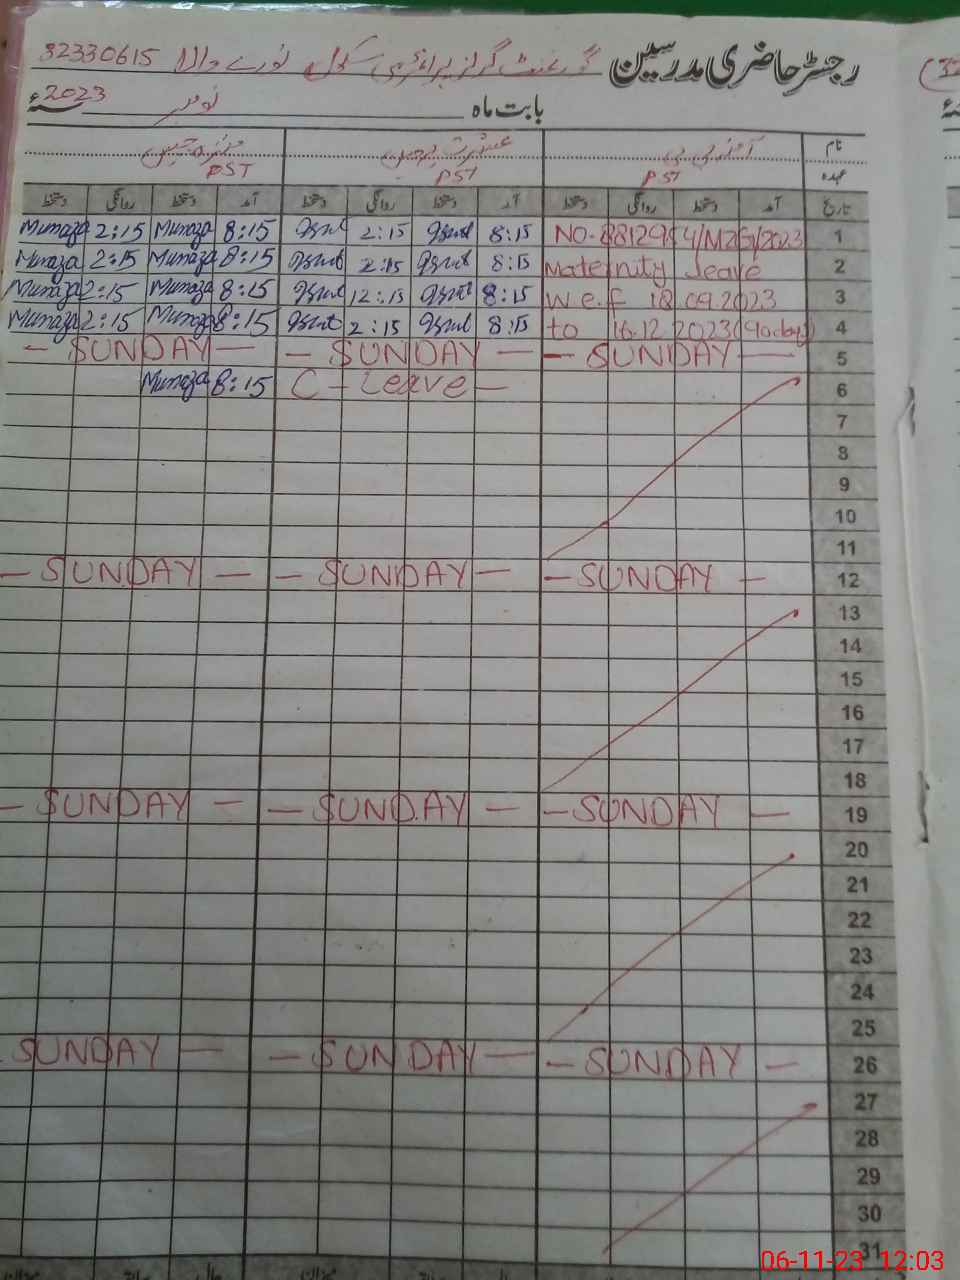 رجسٹر حاضری مدرسین گورنمنٹ گرلز پرائمری سکول نورے والا 32330615
بابت ماہ نومبر 2023ء
نام آمنہ بی بی عشرت جبیں منزہ جبیں
عہدہ PST PST PST
تاریخ آمد دستخط روانگی دستخط آمد دستخط روانگی دستخط آمد دستخط روانگی دستخط
1 NO. 2023 8:15 Ishrat 2:15 Ishrat 8:15 Munaza 2:15 Munaza
2 Maternity leave 8:15 Ishrat 2:15 Ishrat 8:15 Munaza 2:15 Munaza
3 w.e.f 18 09.2023 8:15 Ishrat 12:15 Ishrat 8:15 Munaza 2:15 Munaza
4 to 16.12 2023 (90 days) 8:15 Ishrat 2:15 Ishrat 8:15 Munaza 2:15 Munaza
5 - SUNDAY - - SUNDAY - - SUNDAY -
6 C - Leave - 8:15 Munaza
7
8
9
10
11
12 - SUNDAY - - SUNDAY - - SUNDAY -
13
14
15
16
17
18
19 - SUNDAY - - SUNDAY - - SUNDAY -
20
21
22
23
24
25
26 - SUNDAY - - SUNDAY - - SUNDAY -
27
28
29
30
31
06-11-23 12:03